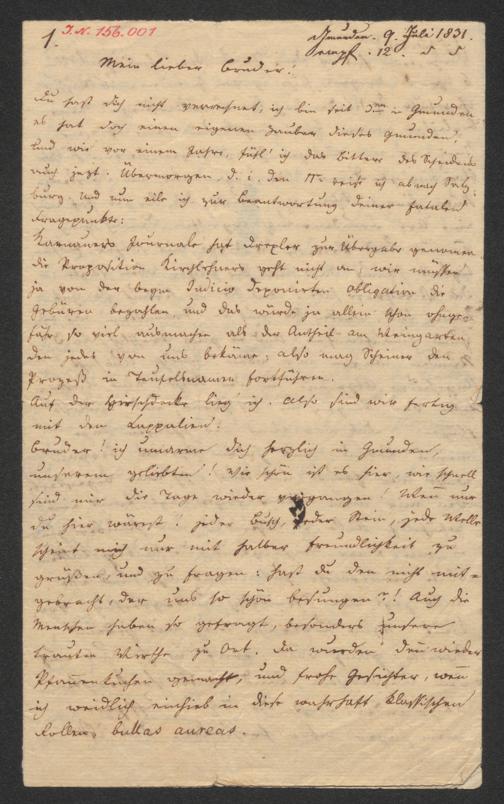 1. I.N. 156.001
Gmunden. 9. Juli 1831.
empf. 12.
Mein lieber Bruder!
Du hast dich nicht verrechnet, ich bin seit in Gmunden
es hat doch einen eigenen Zauber dieses Gmunden,
und wie vor einem Jahre, fühl' ich das Bittere des Scheidens
auch jezt. Übermorgen d. i. den 11t. reise ich ab nach Salz
burg. Und nun eile ich zur Beantwortung deiner fatalen
Fragepunkte:
Journale hat Drexler zur Übergabe genommen
die Proposition Kirchlehners geht nicht an, wir müßten
ja von der beym Judicio deponirten Obligation die
Gebüren bezahlen und das würde ja allein schon ohnge-
fähr so viel ausmachen als der Antheil am Weingarten,
den jedes von uns bekäme; also mag Scheiner den
Prozeß in Teufelsnamen fortführen.
Auf der Hirschdecke lieg' ich. Also sind wir fertig
mit den Lappalien:
Bruder! ich umarme dich herzlich in Gmunden,
unserem geliebten! Wie schön ist es hier, wie schnell
sind mir die Tage wieder vergangen! Wenn nur
du hier wärest! jeder Busch, jeder Stein, jede Welle
scheint mich nur mit halber Freundlichkeit zu
grüßen, und zu fragen: hast du den nicht mit-
gebracht, der uns so schön besungen?! Auch die
Menschen haben so gefragt, besonders unsere
trauten Wirthe zu Ort. Da wurden denn wieder
Pfannenkuchen gemacht, und frohe Gesichter, wenn
ich weidlich einhieb in diese wahrhaft klassischen
Rollen, bullas aureas.